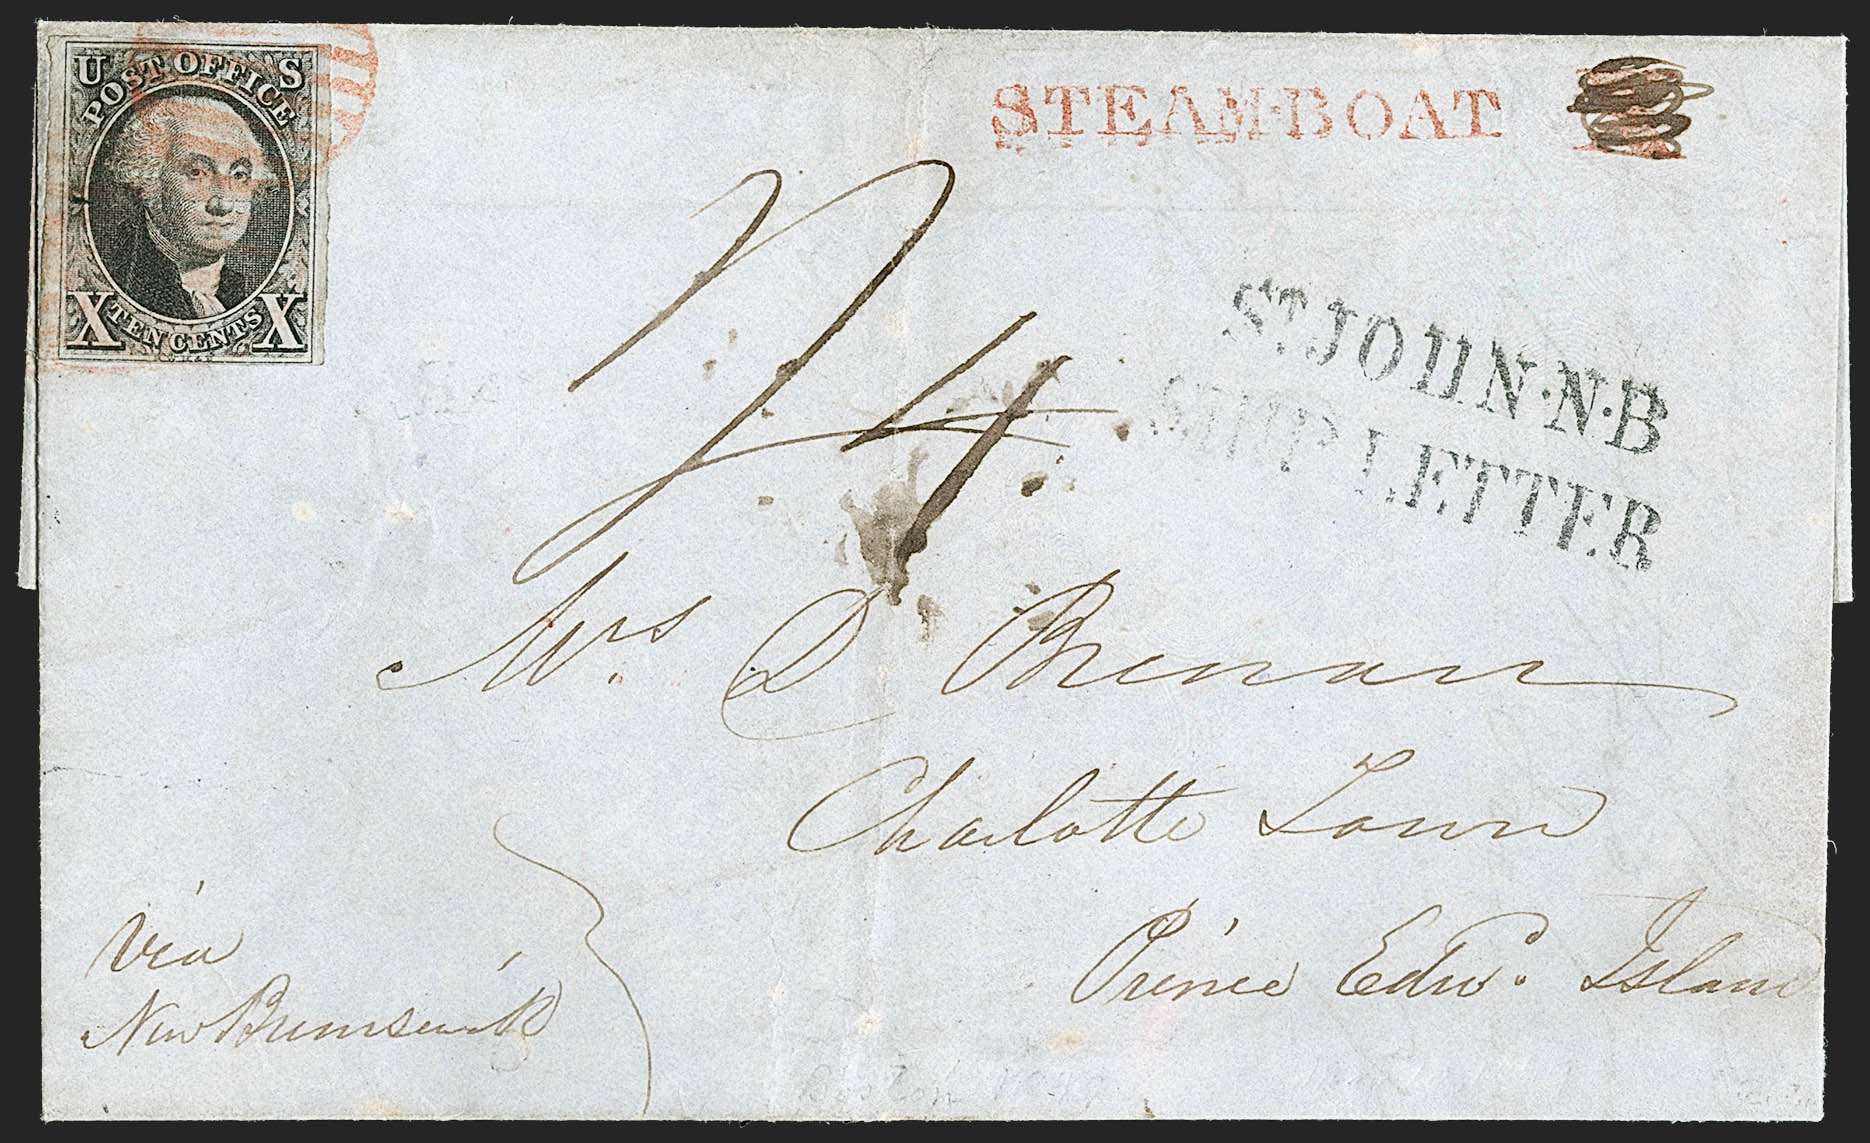 U S
POST OFFICE
X TEN CENTS X
STEAM·BOAT
ST JOHN·N·B
SHIP LETTER
Mrs. D Brenan
Charlotte Town
Prince Edwd. Island
Via
New Brunswick
Boston 1847